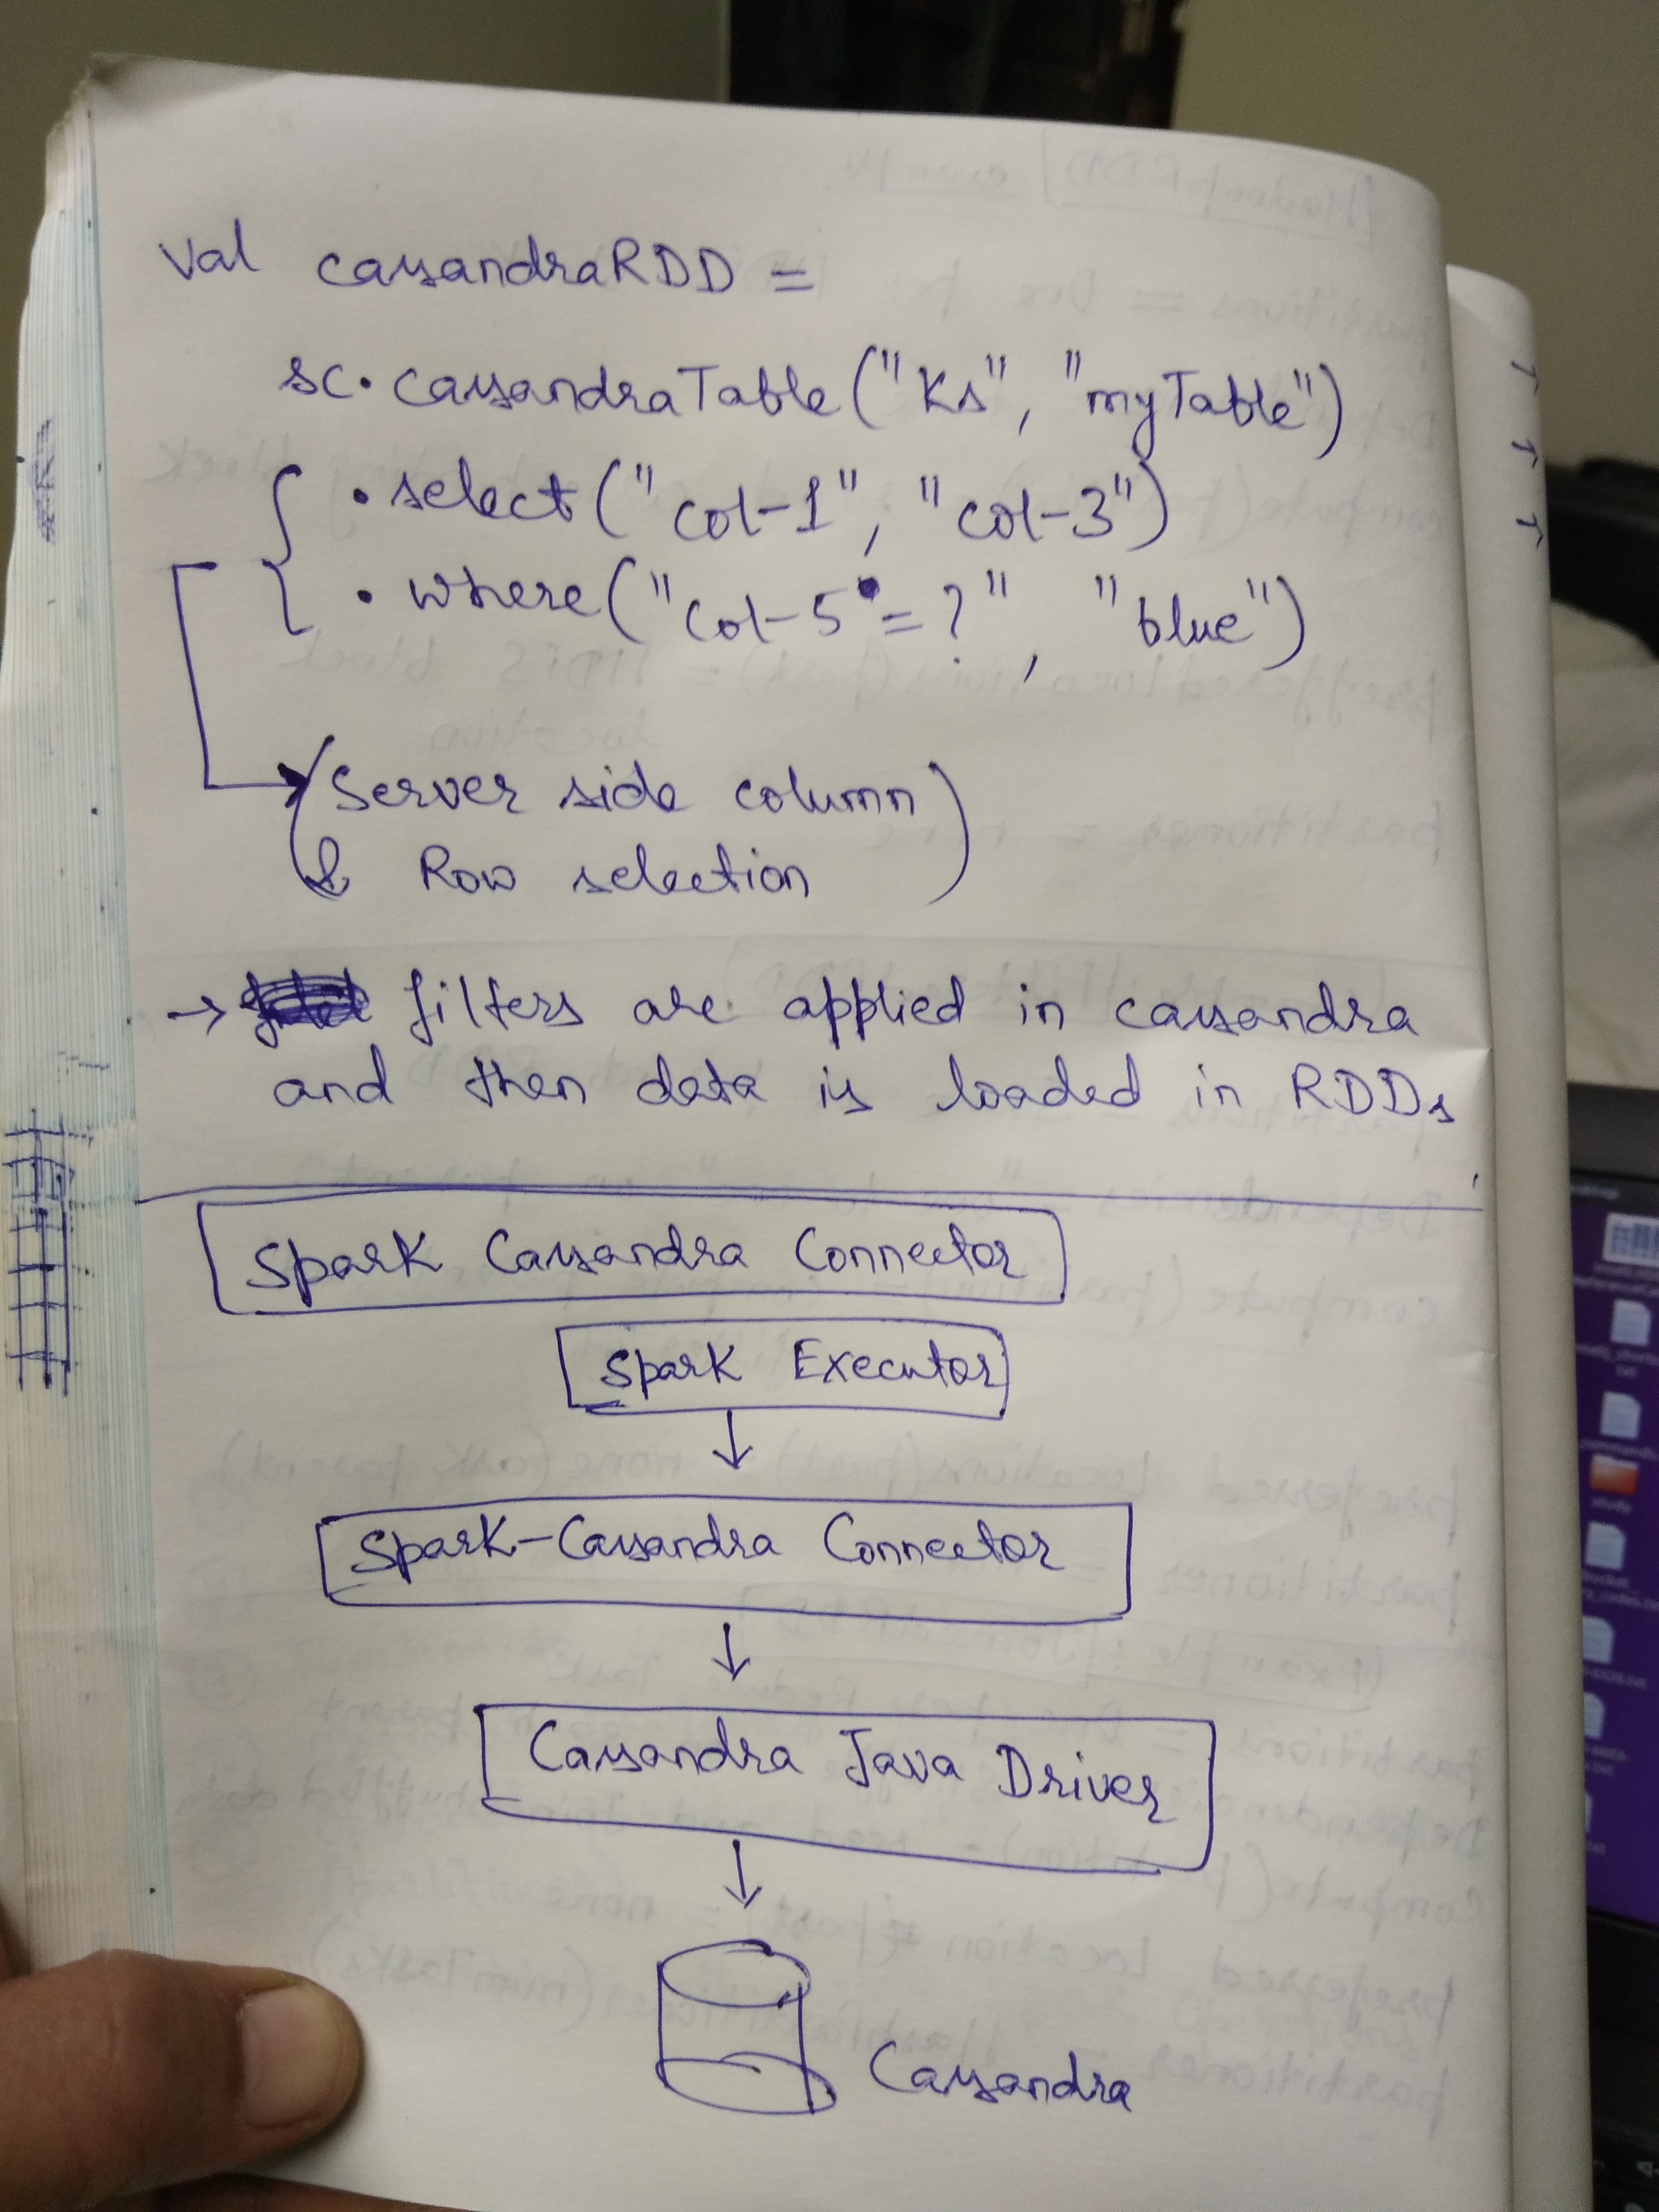 val cassandraRDD =
sc.cassandraTable("Ks", "myTable")
.select("col-1", "col-3")
.where("col-5 = ?", "blue")
(Server side column
& Row selection)
→ filters are applied in cassandra
and then data is loaded in RDDs
Spark Cassandra Connector
Spark Executor
↓
Spark-Cassandra Connector
↓
Cassandra Java Driver
↓
Cassandra